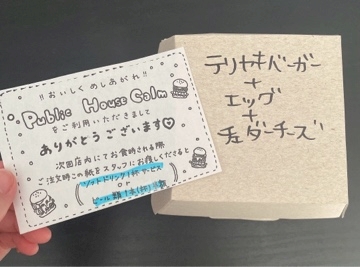 !! おいしく めしあがれ !!
Public House Calm
をご利用いただきまして
ありがとうございます♡
次回店内にてお食事される際
ご注文時この紙をスタッフにお渡しくださると
ソフトドリンク1杯サービス
or
ビール類1杯(杯)
テリヤキバーガー
+
エッグ
+
チェダーチーズ